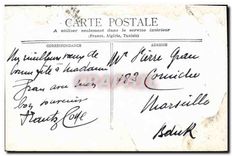 CARTE POSTALE
A utiliser seulement dans le service intérieur
(France, Algérie, Tunisie)
CORRESPONDANCE
ADRESSE
Meilleurs voeux de
bonne fête à Madame
Grau
souvenir
Mr Pierre Grau
183 Corniche
Marseille